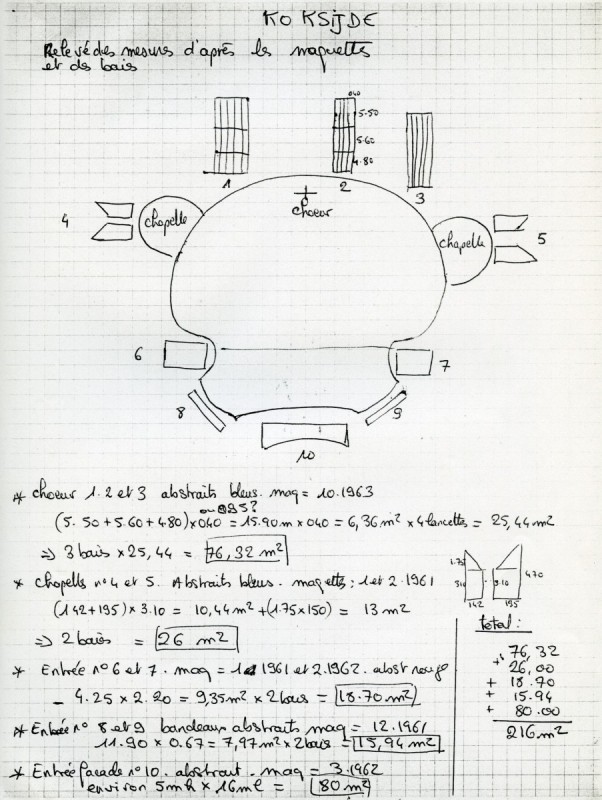 KOKSIJDE
Relevé des mesures d'après les maquettes
et des baies
040
5.50
5.60
4.80
1
2
3
choeur
4
chapelle
chapelle
5
6
7
8
9
10
* choeur 1.2 et 3 abstraits bleus. maq = 10.1963
ou 035?
(5.50+5.60+4.80)×040 = 15.90m × 040 = 6,36 m² × 4 lancettes = 25,44 m²
⇒ 3 bais × 25,44 = 76,32 m²
1.75
3.10
3.10
4.70
142
195
* Chapelles n° 4 et 5. Abstraits bleus. maquettes: 1 et 2.1961
(142+195) × 3.10 = 10,44 m² + (1.75×150) = 13 m²
⇒ 2 baies = 26 m²
* Entrée n° 6 et 7. maq = 1 1961 et 2.1962. abst rouge
- 4.25 × 2.20 = 9,35 m² × 2 bais = 18.70 m²
* Entrée n° 8 et 9 bandeaux abstraits maq = 12.1961
11.90 × 0.67 = 7,97 m² × 2 bais = 15,94 m²
* Entrée facade n° 10. abstrait. maq = 3.1962
environ 5mh × 16ml = 80 m²
total:
76,32
+ 26,00
+ 18.70
+ 15.94
+ 80.00
216 m²